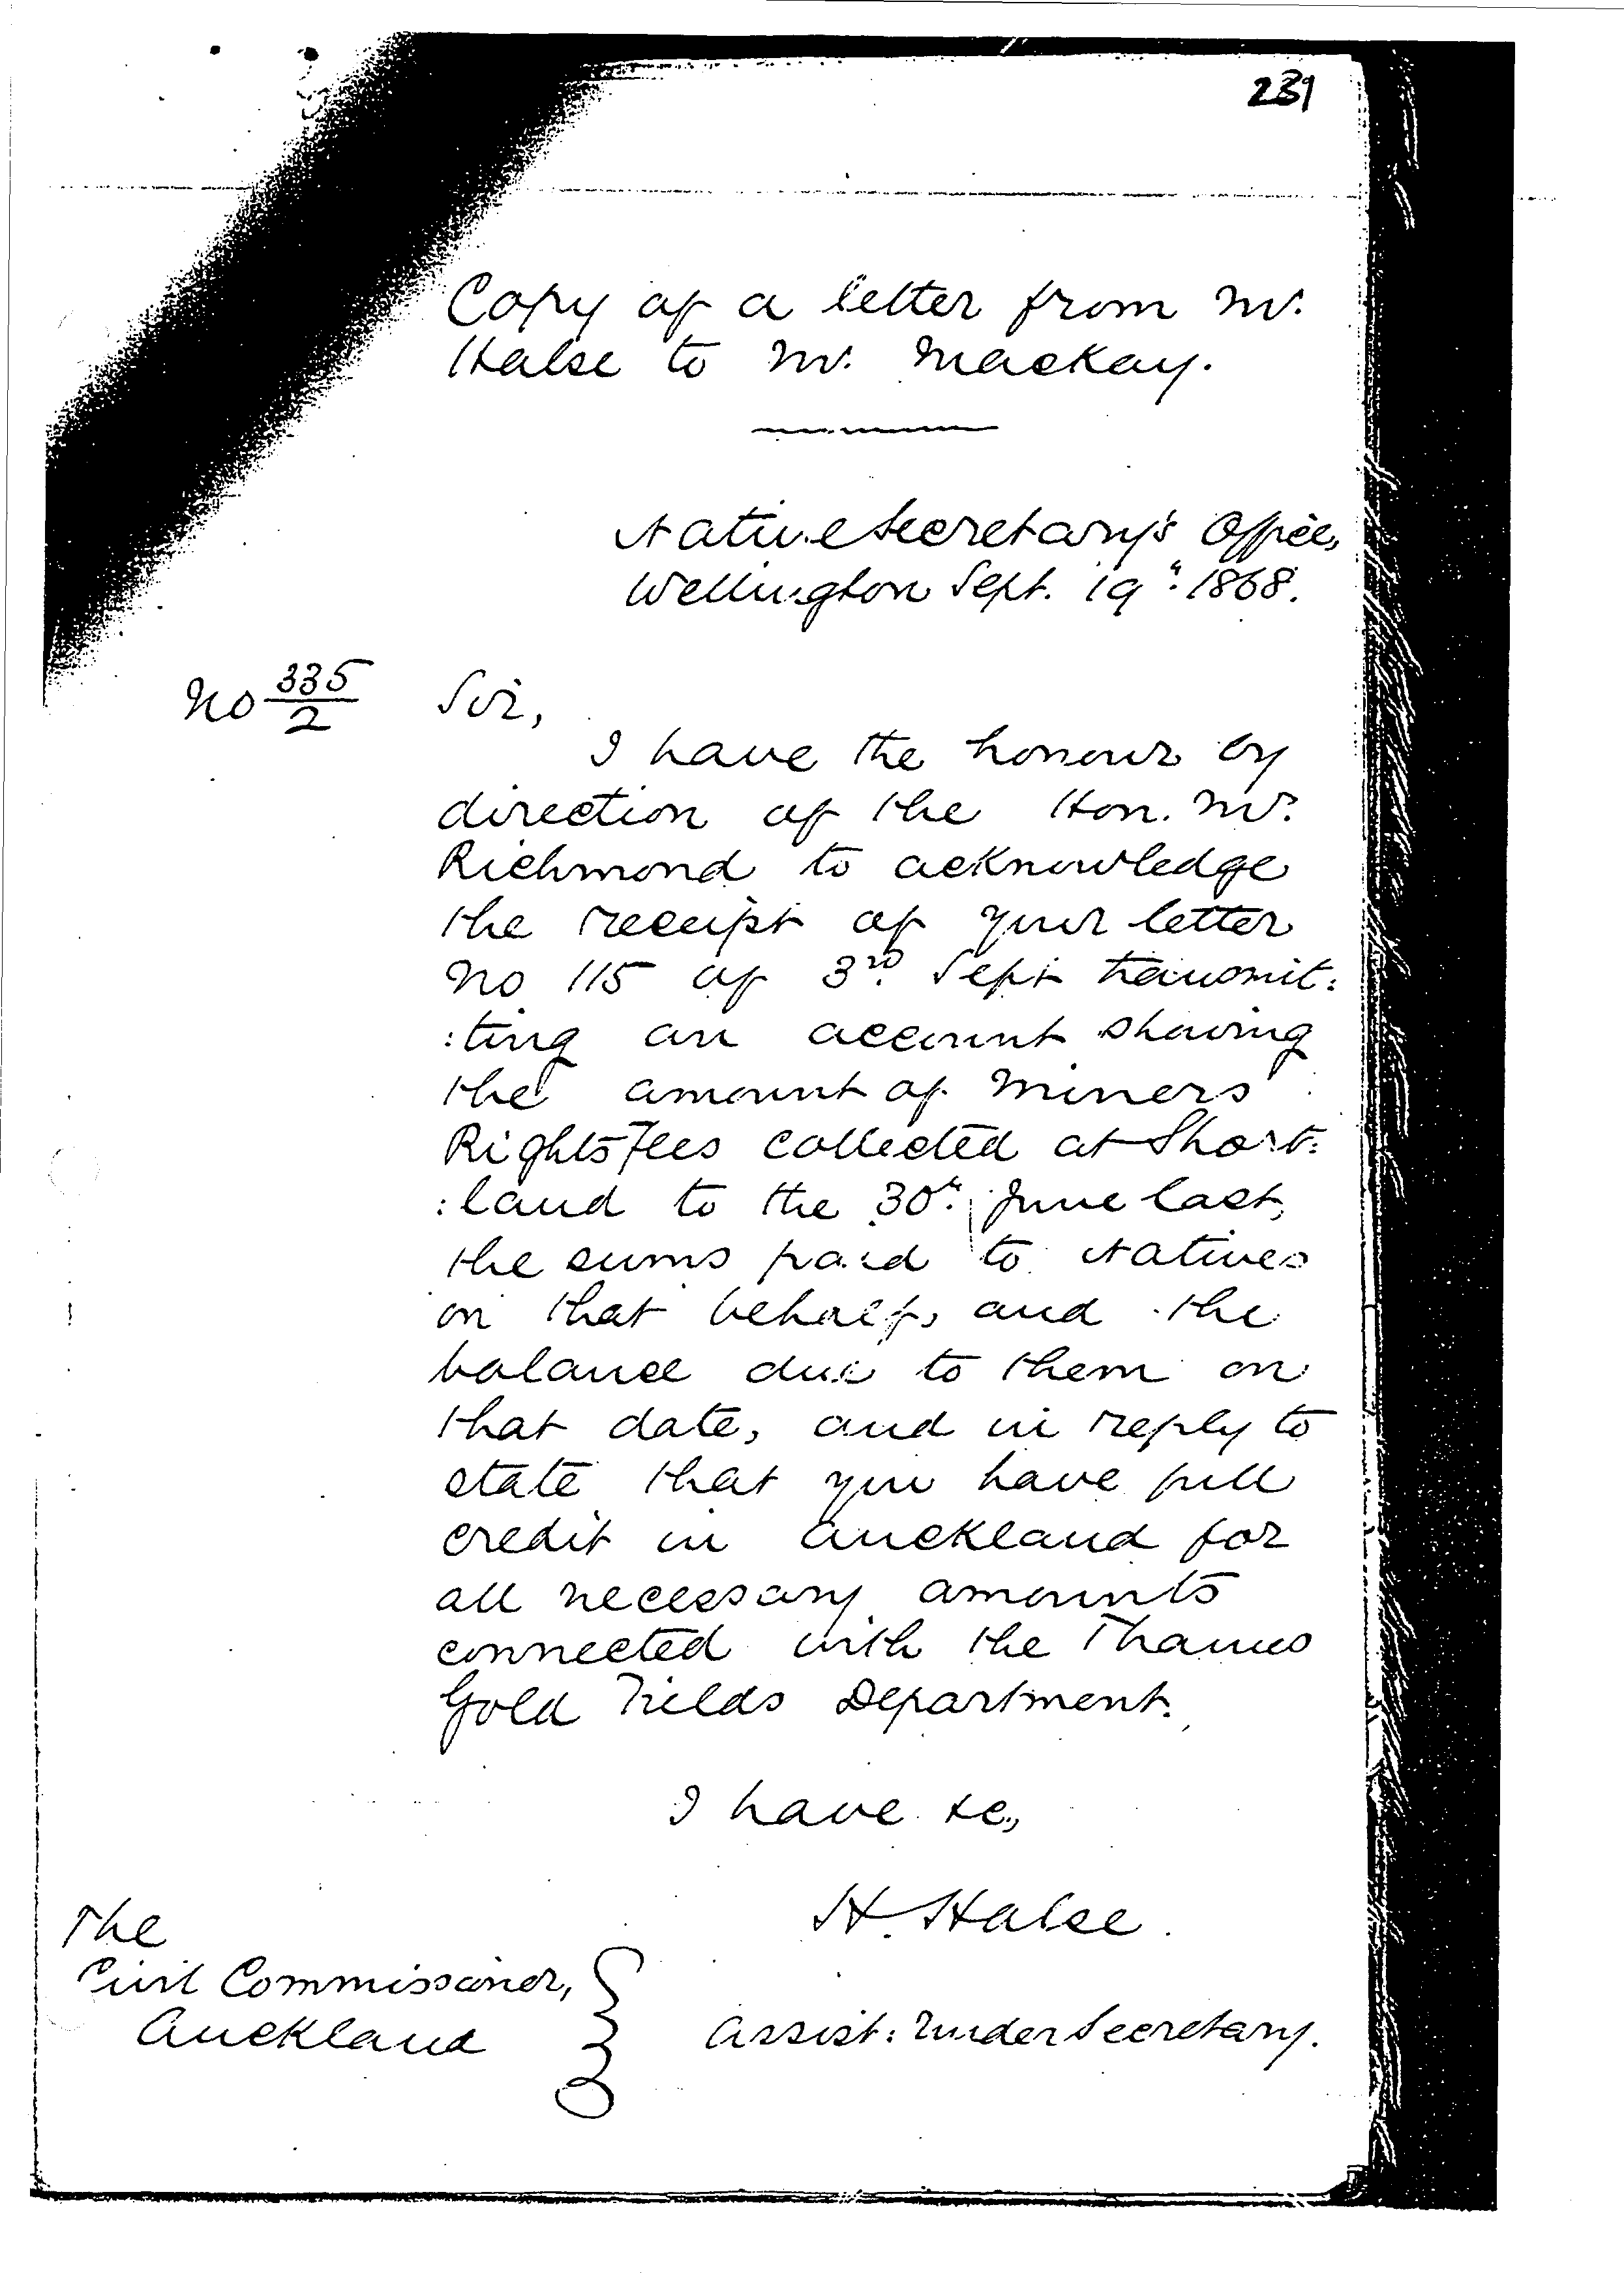 239
Copy of a letter from Mr.
Halse to Mr. Mackay.
Native Secretary's Office,
Wellington Sept. 19": 1868.
No 335/2 Sir,
I have the honour by
direction of the Hon. Mr.
Richmond to acknowledge
the receipt of your letter
No 115 of 3rd. Sept transmit:
:ting an account showing
the amount of Miners
Rights Fees collected at Short:
:land to the 30": June last,
the sums paid to Natives
on that behalf, and the
balance due to them on
that date, and in reply to
state that you have full
credit in Auckland for
all necessary amounts
connected with the Thames
Gold Fields Department.
I have &c.,
H. Halse.
Assist: Under Secretary.
The
Civil Commissioner,
Auckland